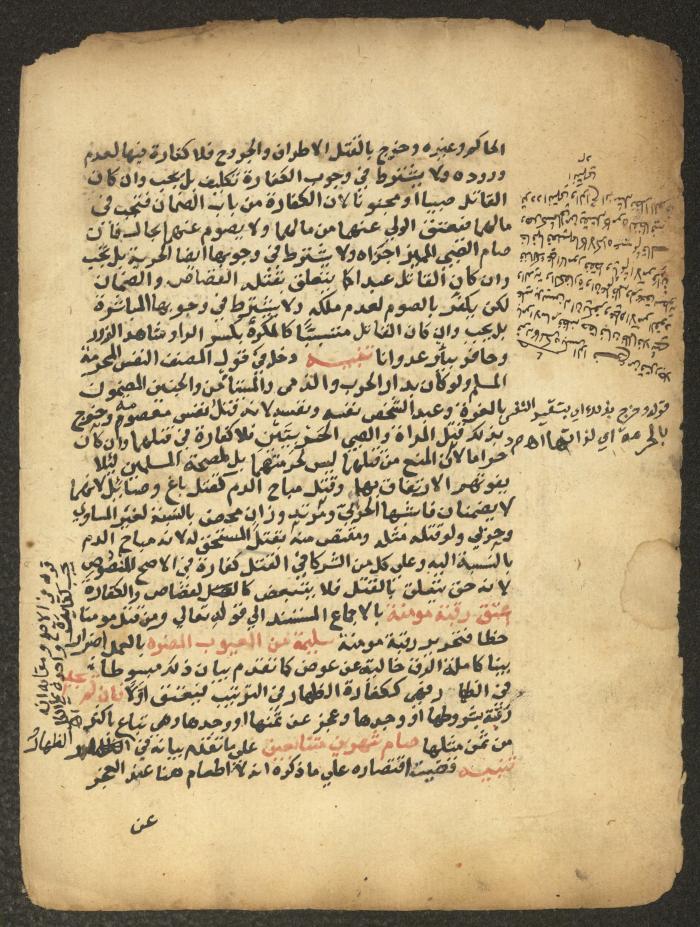 الحاكم وغيره وخرج بالقتل الاطراف والجروح فلا كفارة فيها لعدم
وروده ولا يشترط في وجوب الكفارة تكليف بل يجب وان كان
القاتل صبيا او مجنونا لان الكفارة من باب الضمان فتجب في
مالهما فيعتق الولي عنهما من مالهما ولا يصوم عنهما بحال فان
صام الصبي المميز اجزاه ولا يشترط في وجوبها ايضا الحرية بل يجب
وان كان القاتل عبدا كما يتعلق بقتله القصاص والضمان
لكن يكفر بالصوم لعدم ملكه ولا يشترط في وجوبها المباشرة
بل يجب وان كان القاتل متسببا كالمكره بكسر الراء وشاهد الزور
وحافر بئر عدوانا تنبيه دخل في قول المصنف النفس المحرمة
المسلم ولو كان بدار الحرب والذمي والمستامن والجنين المضمون
بالغرة وعبد الشخص نفسه ونفسه لانه قتل نفس معصومة وخرج
بذلك قتل المراة والصبي الحربيين فلا كفارة في قتلهما وان كان
حراما لان المنع من قتلهما ليس لحرمتهما بل لمصلحة المسلمين ليلا
يفوتهم الارتفاق بهما وقتل مباح الدم كقتل باغ وصايل لانهما
لا يضمنان فاشبها الحربي ومرتد وزان محصن بالنسبة لغير المساوي
وحربي ولو قتله مثله ومقتص منه بقتل المستحق له لانه مباح الدم
بالنسبة اليه وعلى كل من الشركا في القتل كفارة في الاصح المنصوص
لانه حق يتعلق بالقتل فلا يتبعض كالقصاص والكفارة
عتق رقبة مومنة بالاجماع المستند الي قوله تعالي ومن قتل مومنا
خطا فتحرير رقبة مومنة سليمة من العيوب المضره بالعمل اضرارا
بينا كاملة الرق خالية عن عوض كما تقدم بيان ذلك مبسوطا
في الظهار فهي ككفارة الظهار في الترتيب فيعتق اولا فان لم يجد
رقبة بشروطها او وجدها وعجز عن ثمنها او وجدها وهي تباع باكثر
من ثمن مثلها صام شهرين متتابعين علي ما تقدم بيانه في الظهار
تنبيه قضية اقتصاره علي ما ذكره انه لا اطعام هنا عند العجز
عن
قوله وخرج بذلك اي بتقييد النفس
بالحرمة اي لذاتها اه م د